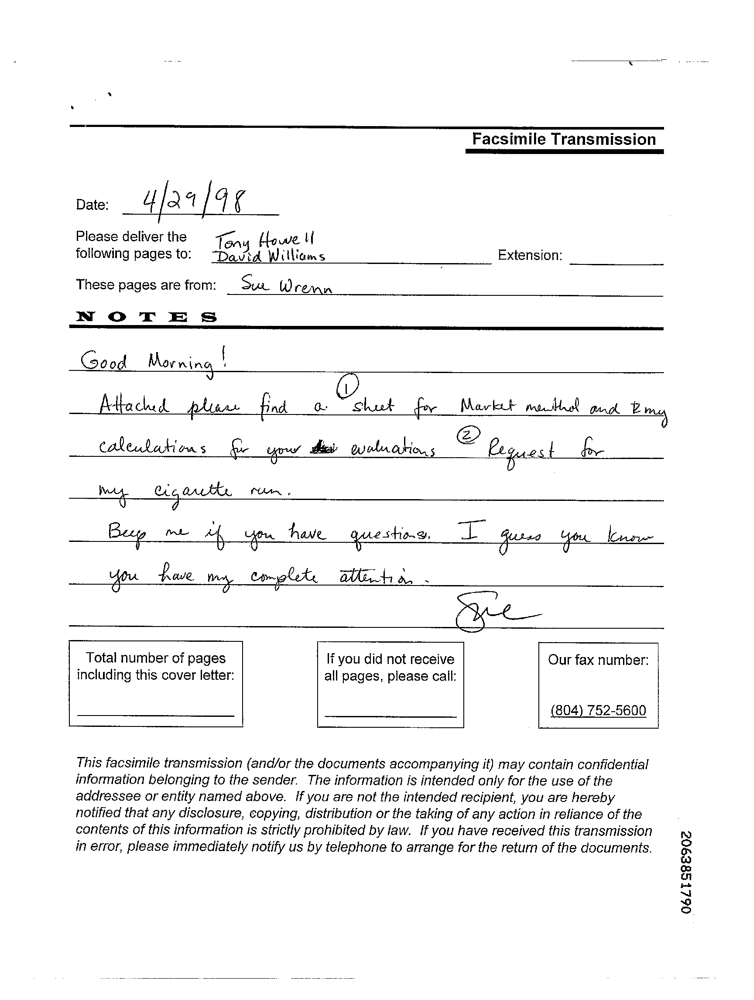 Facsimile Transmission
Date: 4/29/98
Please deliver the Tony Howell
following pages to: David Williams Extension:
These pages are from: Sue Wrenn
NOTES
Good Morning!
Attached please find a ① sheet for Market menthol and my
calculations for your evaluations ② Request for
my cigarette run.
Beep me if you have questions. I guess you know
you have my complete attention.
Sue
Total number of pages
including this cover letter:
If you did not receive
all pages, please call:
Our fax number:
(804) 752-5600
This facsimile transmission (and/or the documents accompanying it) may contain confidential
information belonging to the sender. The information is intended only for the use of the
addressee or entity named above. If you are not the intended recipient, you are hereby
notified that any disclosure, copying, distribution or the taking of any action in reliance of the
contents of this information is strictly prohibited by law. If you have received this transmission
in error, please immediately notify us by telephone to arrange for the return of the documents.
2063851790